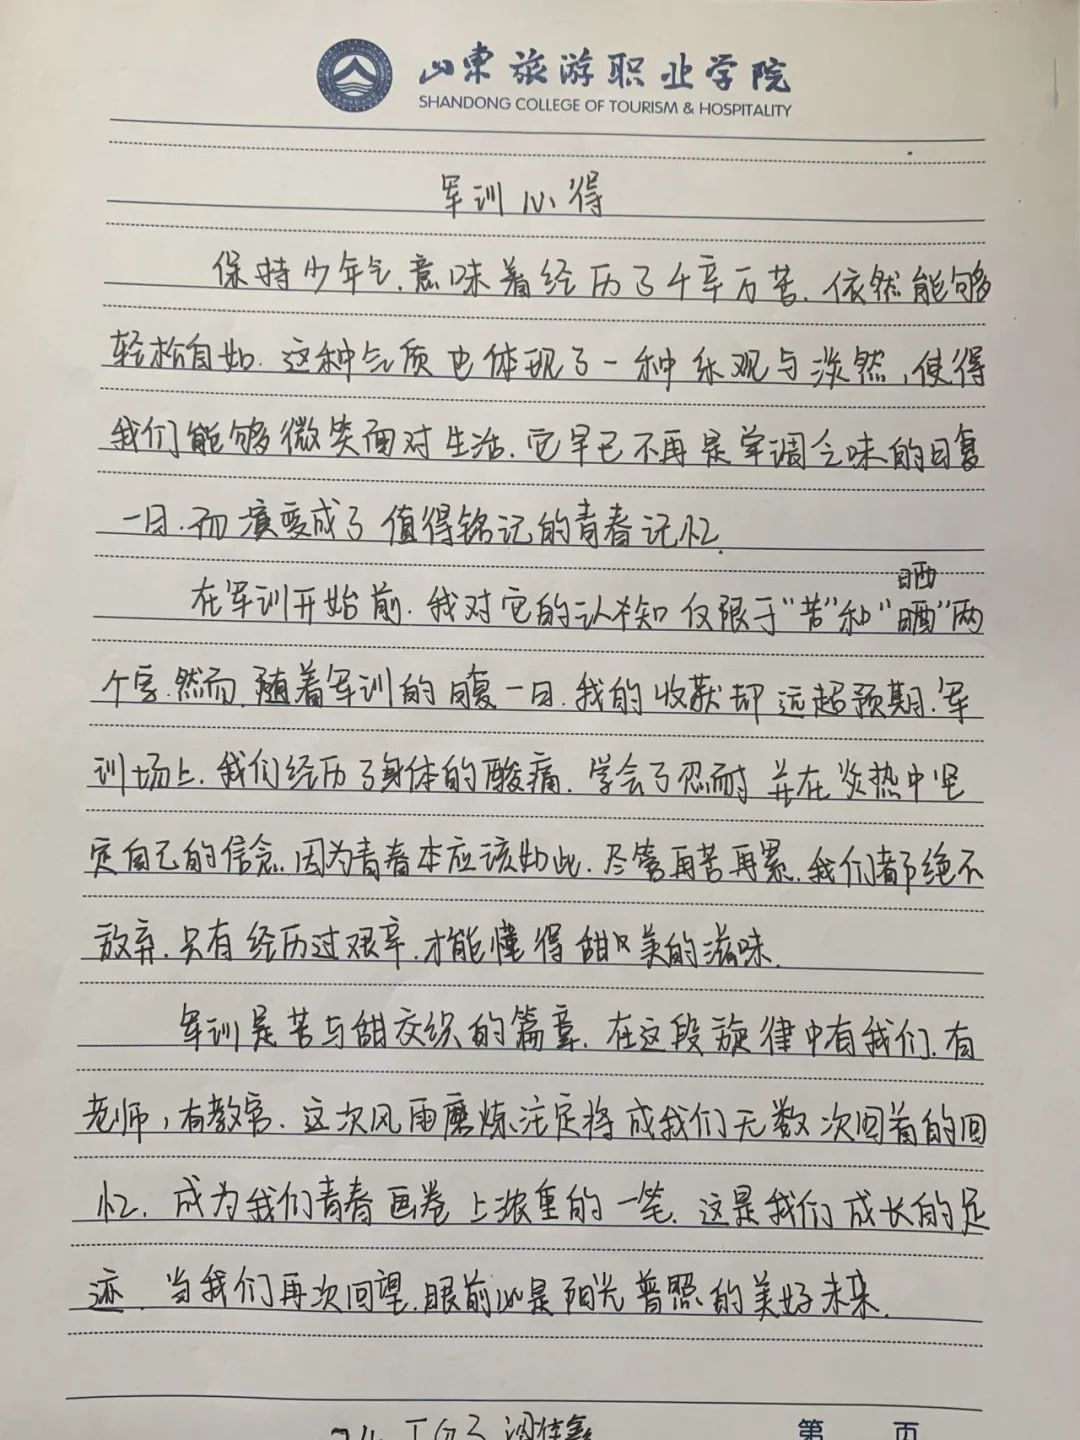 山东旅游职业学院
SHANDONG COLLEGE OF TOURISM & HOSPITALITY
军训心得
保持少年气,意味着经历了千辛万苦,依然能够
轻松自如.这种气质也体现了一种乐观与淡然,使得
我们能够微笑面对生活.它早已不再是单调乏味的日复
一日.而演变成了值得铭记的青春记忆.
晒
在军训开始前.我对它的认知仅限于"苦"和"晒"两
个字.然而,随着军训的日复一日.我的收获却远超预期.军
训场上.我们经历了身体的酸痛.学会了忍耐并在炎热中坚
定自己的信念.因为青春本应该如此.尽管再苦再累.我们都绝不
放弃.只有经历过艰辛.才能懂得甜美的滋味.
军训是苦与甜交织的篇章.在这段旋律中有我们.有
老师,有教官.这次风雨磨炼注定将成我们无数次回首的回
忆.成为我们青春画卷上浓重的一笔.这是我们成长的足
迹.当我们再次回望.眼前必是阳光普照的美好未来.
第 页